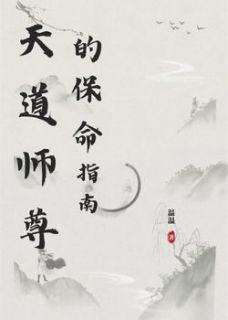 天道师尊
的保命指南
温温
著